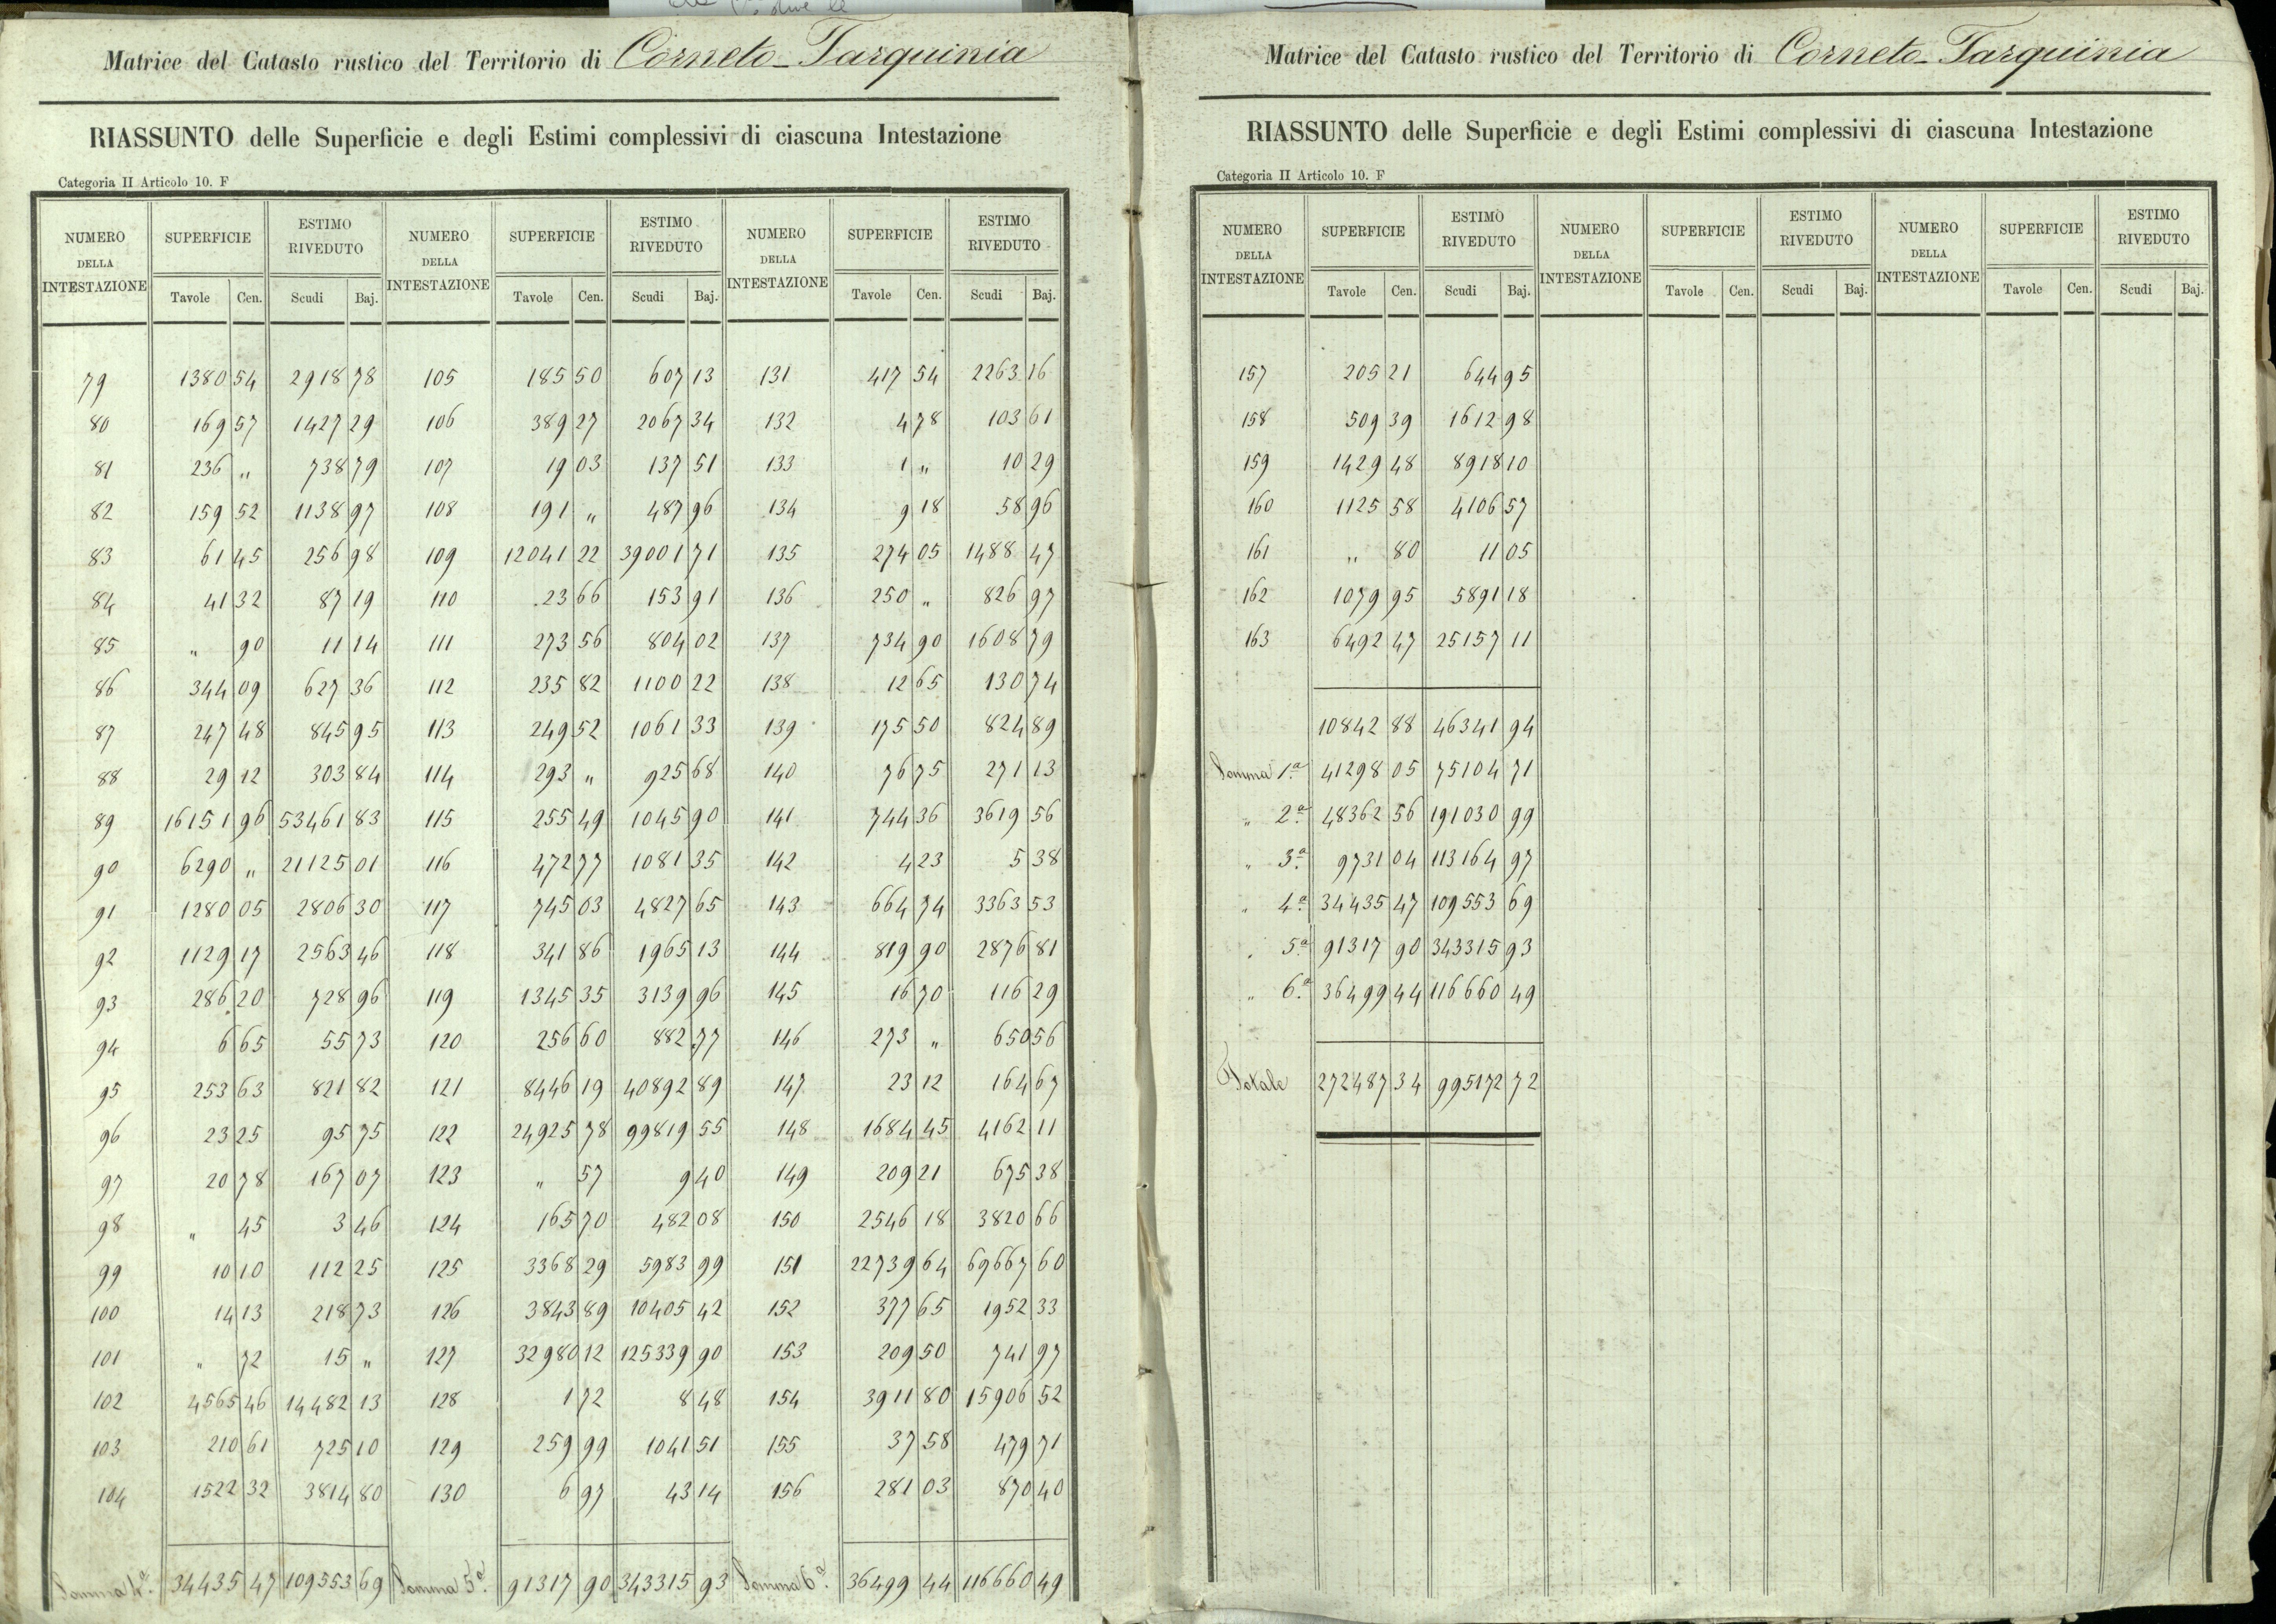 Matrice del Catasto rustico del Territorio di Corneto-Tarquinia
RIASSUNTO delle Superficie e degli Estimi complessivi di ciascuna Intestazione
Categoria II Articolo 10. F
NUMERO DELLA INTESTAZIONE SUPERFICIE ESTIMO RIVEDUTO NUMERO DELLA INTESTAZIONE SUPERFICIE ESTIMO RIVEDUTO NUMERO DELLA INTESTAZIONE SUPERFICIE ESTIMO RIVEDUTO
Tavole Cen. Scudi Baj. Tavole Cen. Scudi Baj. Tavole Cen. Scudi Baj.
79 1380 54 2918 78 105 185 50 607 13 131 417 54 2263 16
80 169 57 1427 29 106 389 27 2067 34 132 4 78 103 61
81 236 „ 738 79 107 19 03 137 51 133 1 „ 10 29
82 159 52 1138 97 108 191 „ 487 96 134 9 18 58 96
83 61 45 256 98 109 12041 22 39001 71 135 274 05 1488 47
84 41 32 87 19 110 23 66 153 91 136 250 „ 826 97
85 „ 90 11 14 111 273 56 804 02 137 734 90 1608 79
86 344 09 627 36 112 235 82 1100 22 138 12 65 130 74
87 247 48 845 95 113 249 52 1061 33 139 175 50 824 89
88 29 12 303 84 114 293 „ 925 68 140 76 75 271 13
89 16151 96 53461 83 115 255 49 1045 90 141 744 36 3619 56
90 6290 „ 21125 01 116 472 77 1081 35 142 4 23 5 38
91 1280 05 2806 30 117 745 03 4827 65 143 664 74 3363 53
92 1129 17 2563 46 118 341 86 1965 13 144 819 90 2876 81
93 286 20 728 96 119 1345 35 3139 96 145 16 70 116 29
94 6 65 55 73 120 256 60 882 77 146 273 „ 650 56
95 253 63 821 82 121 8446 19 40892 89 147 23 12 164 67
96 23 25 95 75 122 24925 78 99819 55 148 1684 45 4162 11
97 20 78 167 07 123 „ 57 9 40 149 209 21 675 38
98 „ 45 3 46 124 165 70 482 08 150 2546 18 3820 66
99 10 10 112 25 125 3368 29 5983 99 151 22739 64 69667 60
100 14 13 218 73 126 3843 89 10405 42 152 377 65 1952 33
101 „ 72 15 „ 127 32980 12 125339 90 153 209 50 741 97
102 4565 46 14482 13 128 1 72 8 48 154 3911 80 15906 52
103 210 61 725 10 129 259 99 1041 51 155 37 58 479 71
104 1522 32 3814 80 130 6 97 43 14 156 281 03 870 40
Somma 4ª. 34435 47 109553 69 Somma 5ª. 91317 90 343315 93 Somma 6ª. 36499 44 116660 49
Matrice del Catasto rustico del Territorio di Corneto-Tarquinia
RIASSUNTO delle Superficie e degli Estimi complessivi di ciascuna Intestazione
Categoria II Articolo 10. F
NUMERO DELLA INTESTAZIONE SUPERFICIE ESTIMO RIVEDUTO NUMERO DELLA INTESTAZIONE SUPERFICIE ESTIMO RIVEDUTO NUMERO DELLA INTESTAZIONE SUPERFICIE ESTIMO RIVEDUTO
Tavole Cen. Scudi Baj. Tavole Cen. Scudi Baj. Tavole Cen. Scudi Baj.
157 205 21 644 95
158 509 39 1612 98
159 1429 48 8918 10
160 1125 58 4106 57
161 „ 80 11 05
162 1079 95 5891 18
163 6492 47 25157 11
10842 88 46341 94
Somma 1ª. 41298 05 75104 71
„ 2ª. 48362 56 191030 99
„ 3ª. 9731 04 113164 97
„ 4ª. 34435 47 109553 69
„ 5ª. 91317 90 343315 93
„ 6ª. 36499 44 116660 49
Totale 272487 34 995172 72